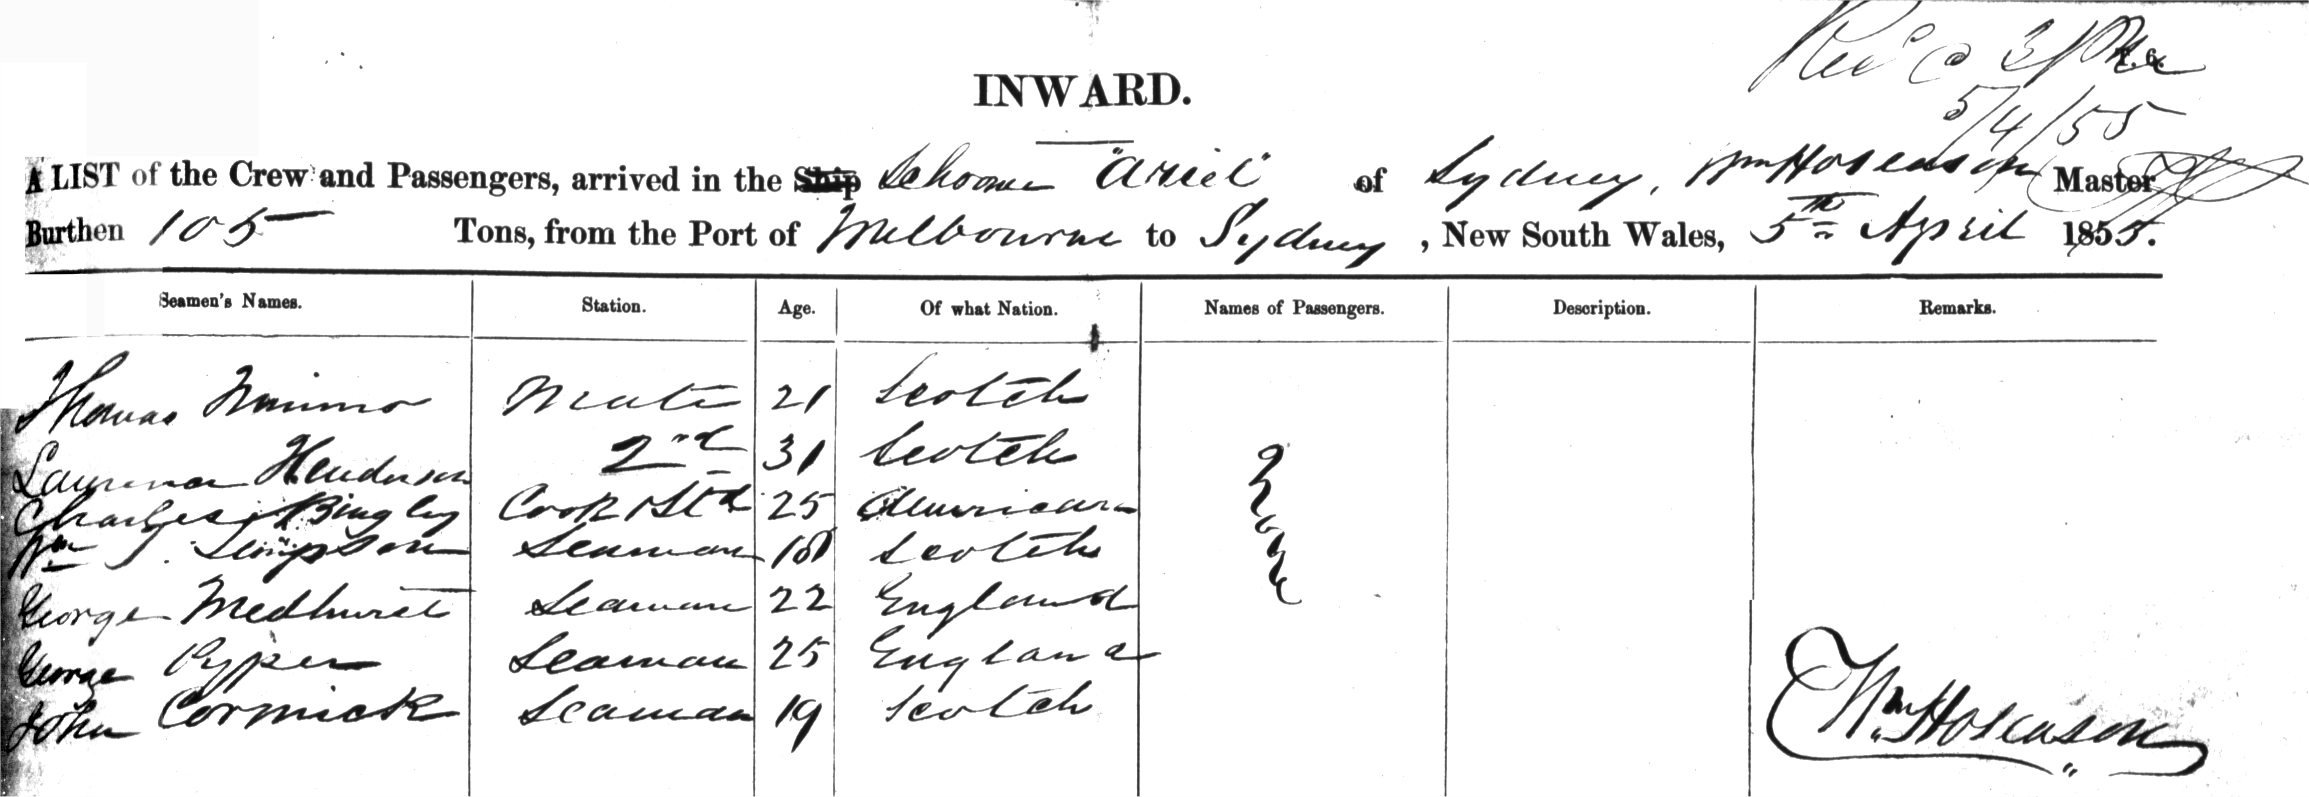 Rec'd @ 3/PM
5/4/55
INWARD.
A LIST of the Crew and Passengers, arrived in the Ship Schooner "Ariel" of Sydney, Wm Hoseason Master
Burthen 105 Tons, from the Port of Melbourne to Sydney, New South Wales, 5th April 1855.
Seamen's Names. Station. Age. Of what Nation. Names of Passengers. Description. Remarks.
Thomas Nimmo Mate 21 Scotch
Laurence Henderson 2nd 31 Scotch
Charles Bingley Cook & Std 25 American
Wm J. Simpson Seaman 18 Scotch
George Medhurst Seaman 22 England
George Pyper Seaman 25 England
John Cormick Seaman 19 Scotch
None
Wm Hoseason